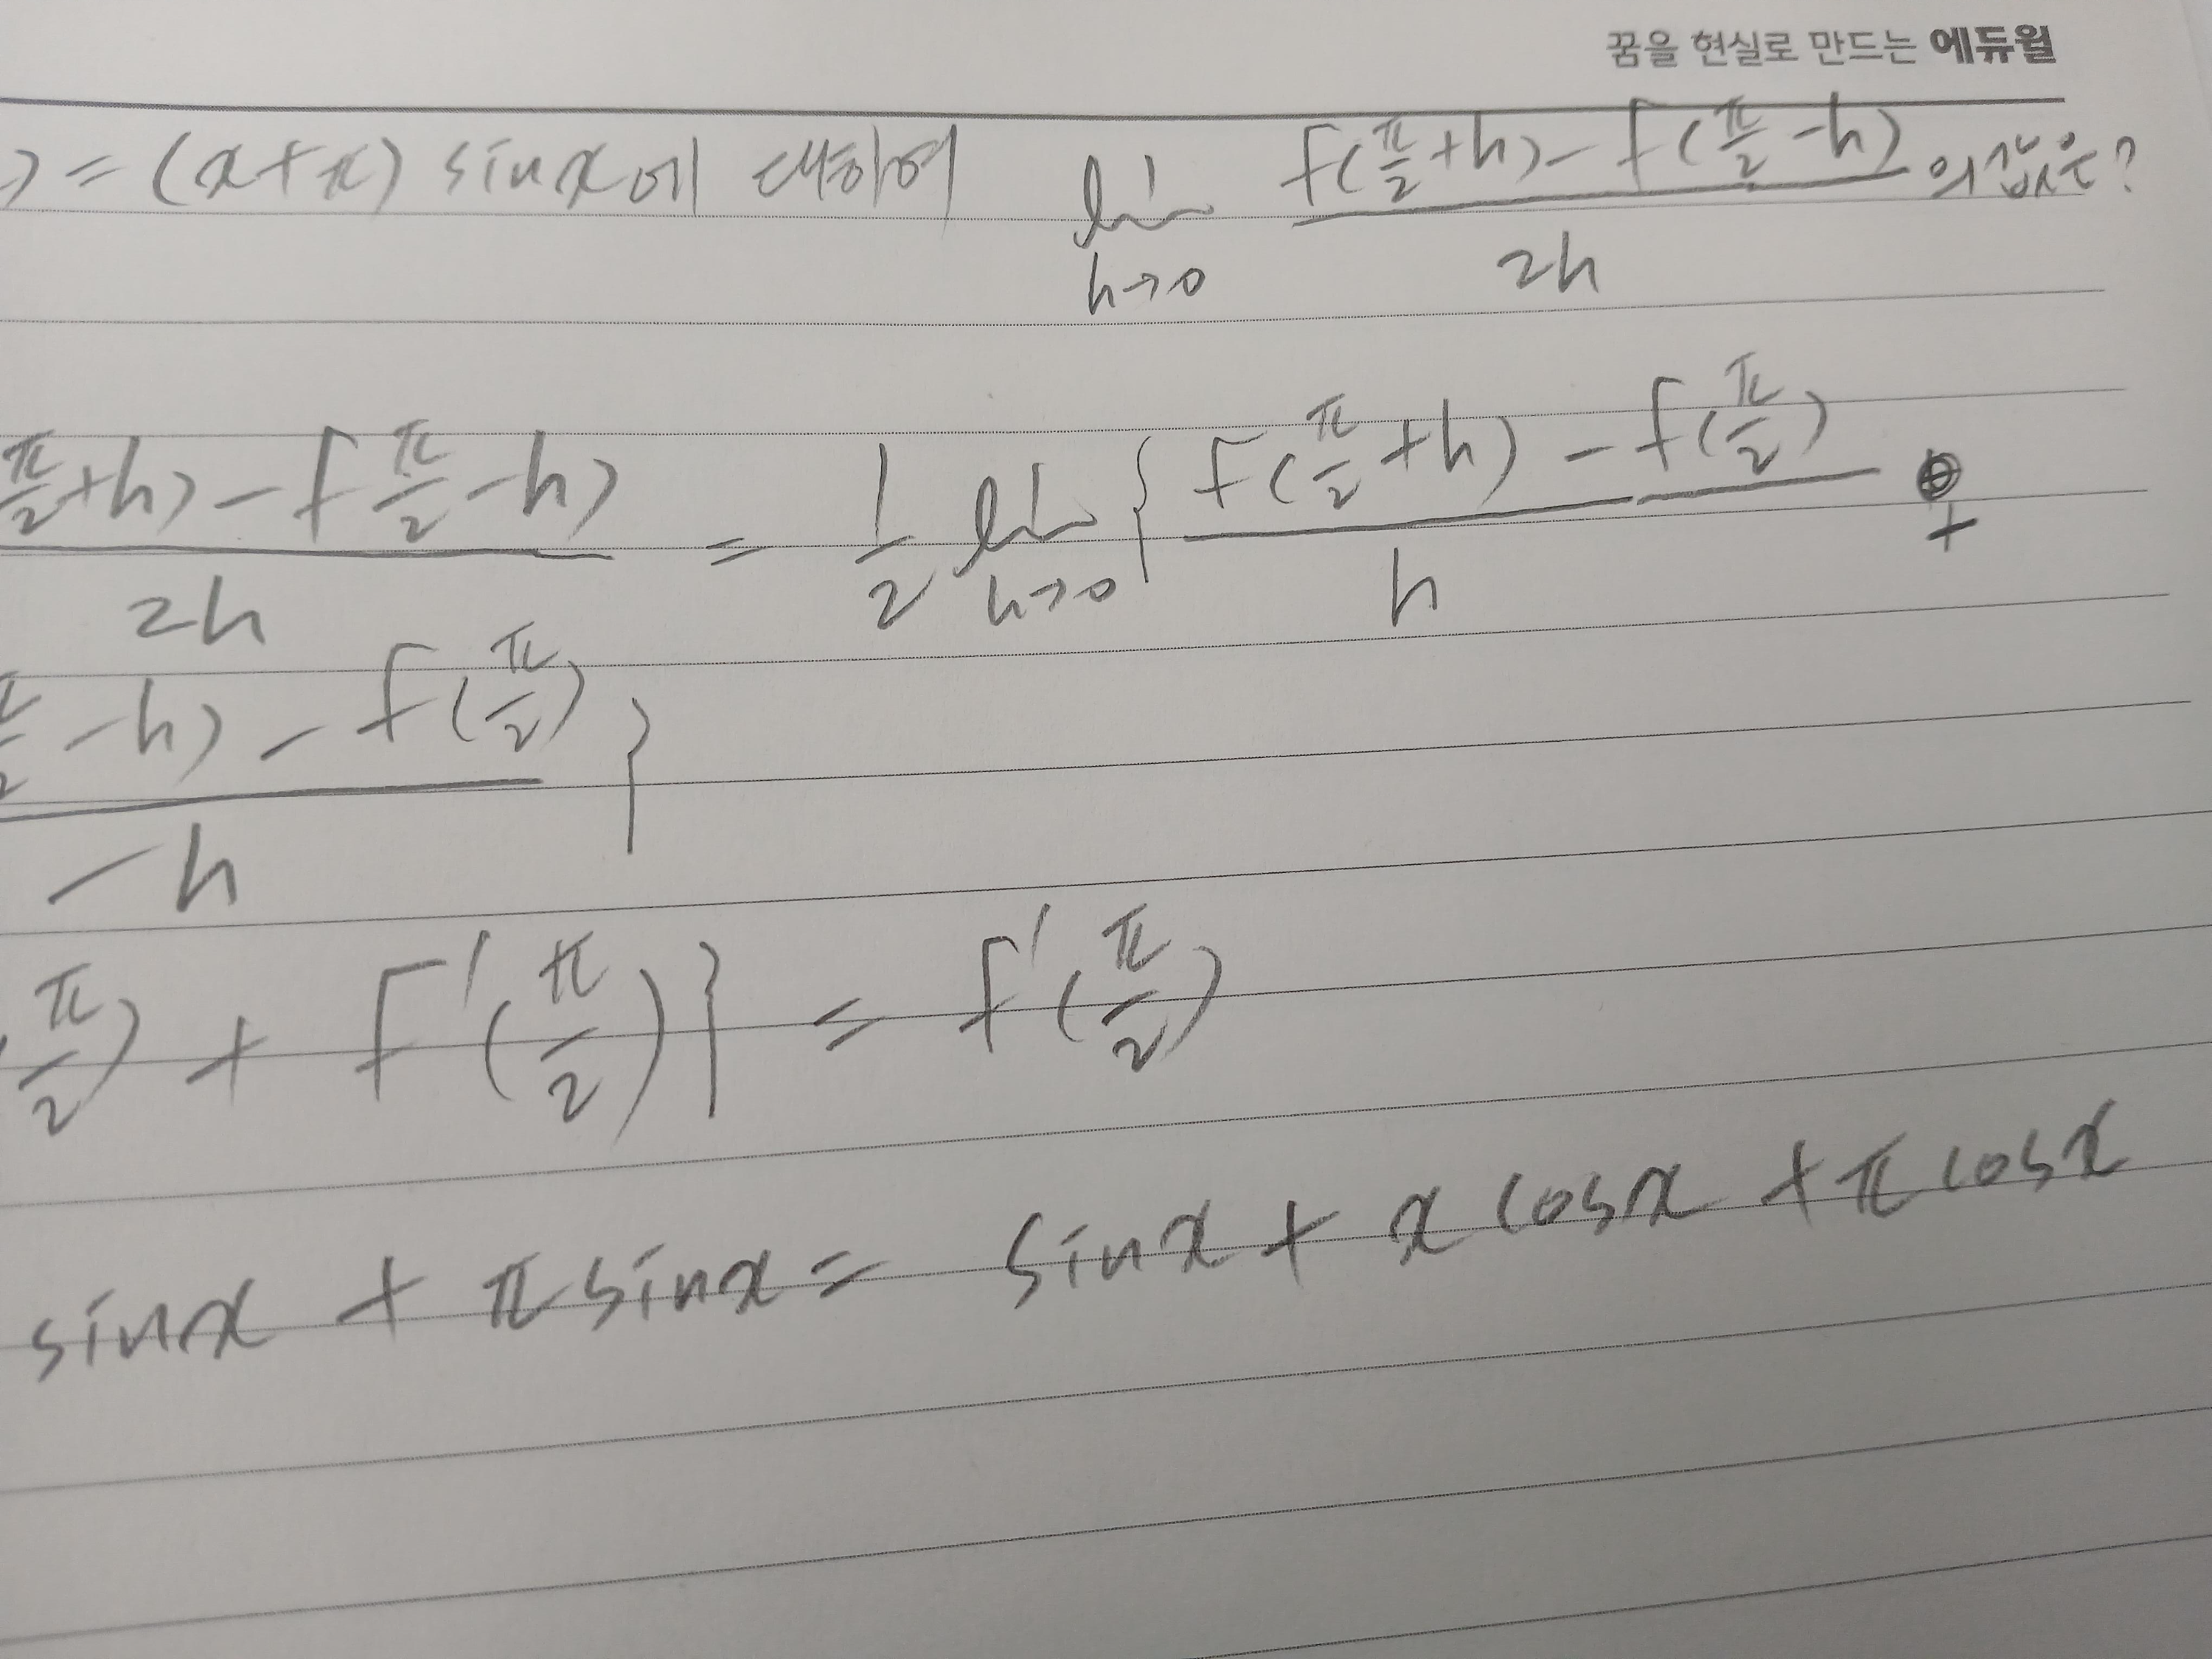 꿈을 현실로 만드는 에듀윌
) = (x+π) sinx에 대하여 lim h→0 f(π/2+h) - f(π/2-h) / 2h 의 값은?
π/2+h) - f π/2-h) / 2h = 1/2 lim h→0 { f(π/2+h) - f(π/2) / h +
-h) - f(π/2) / -h }
π/2) + f'(π/2)} = f'(π/2)
sinx + π sinx = sinx + x cosx + π cosx